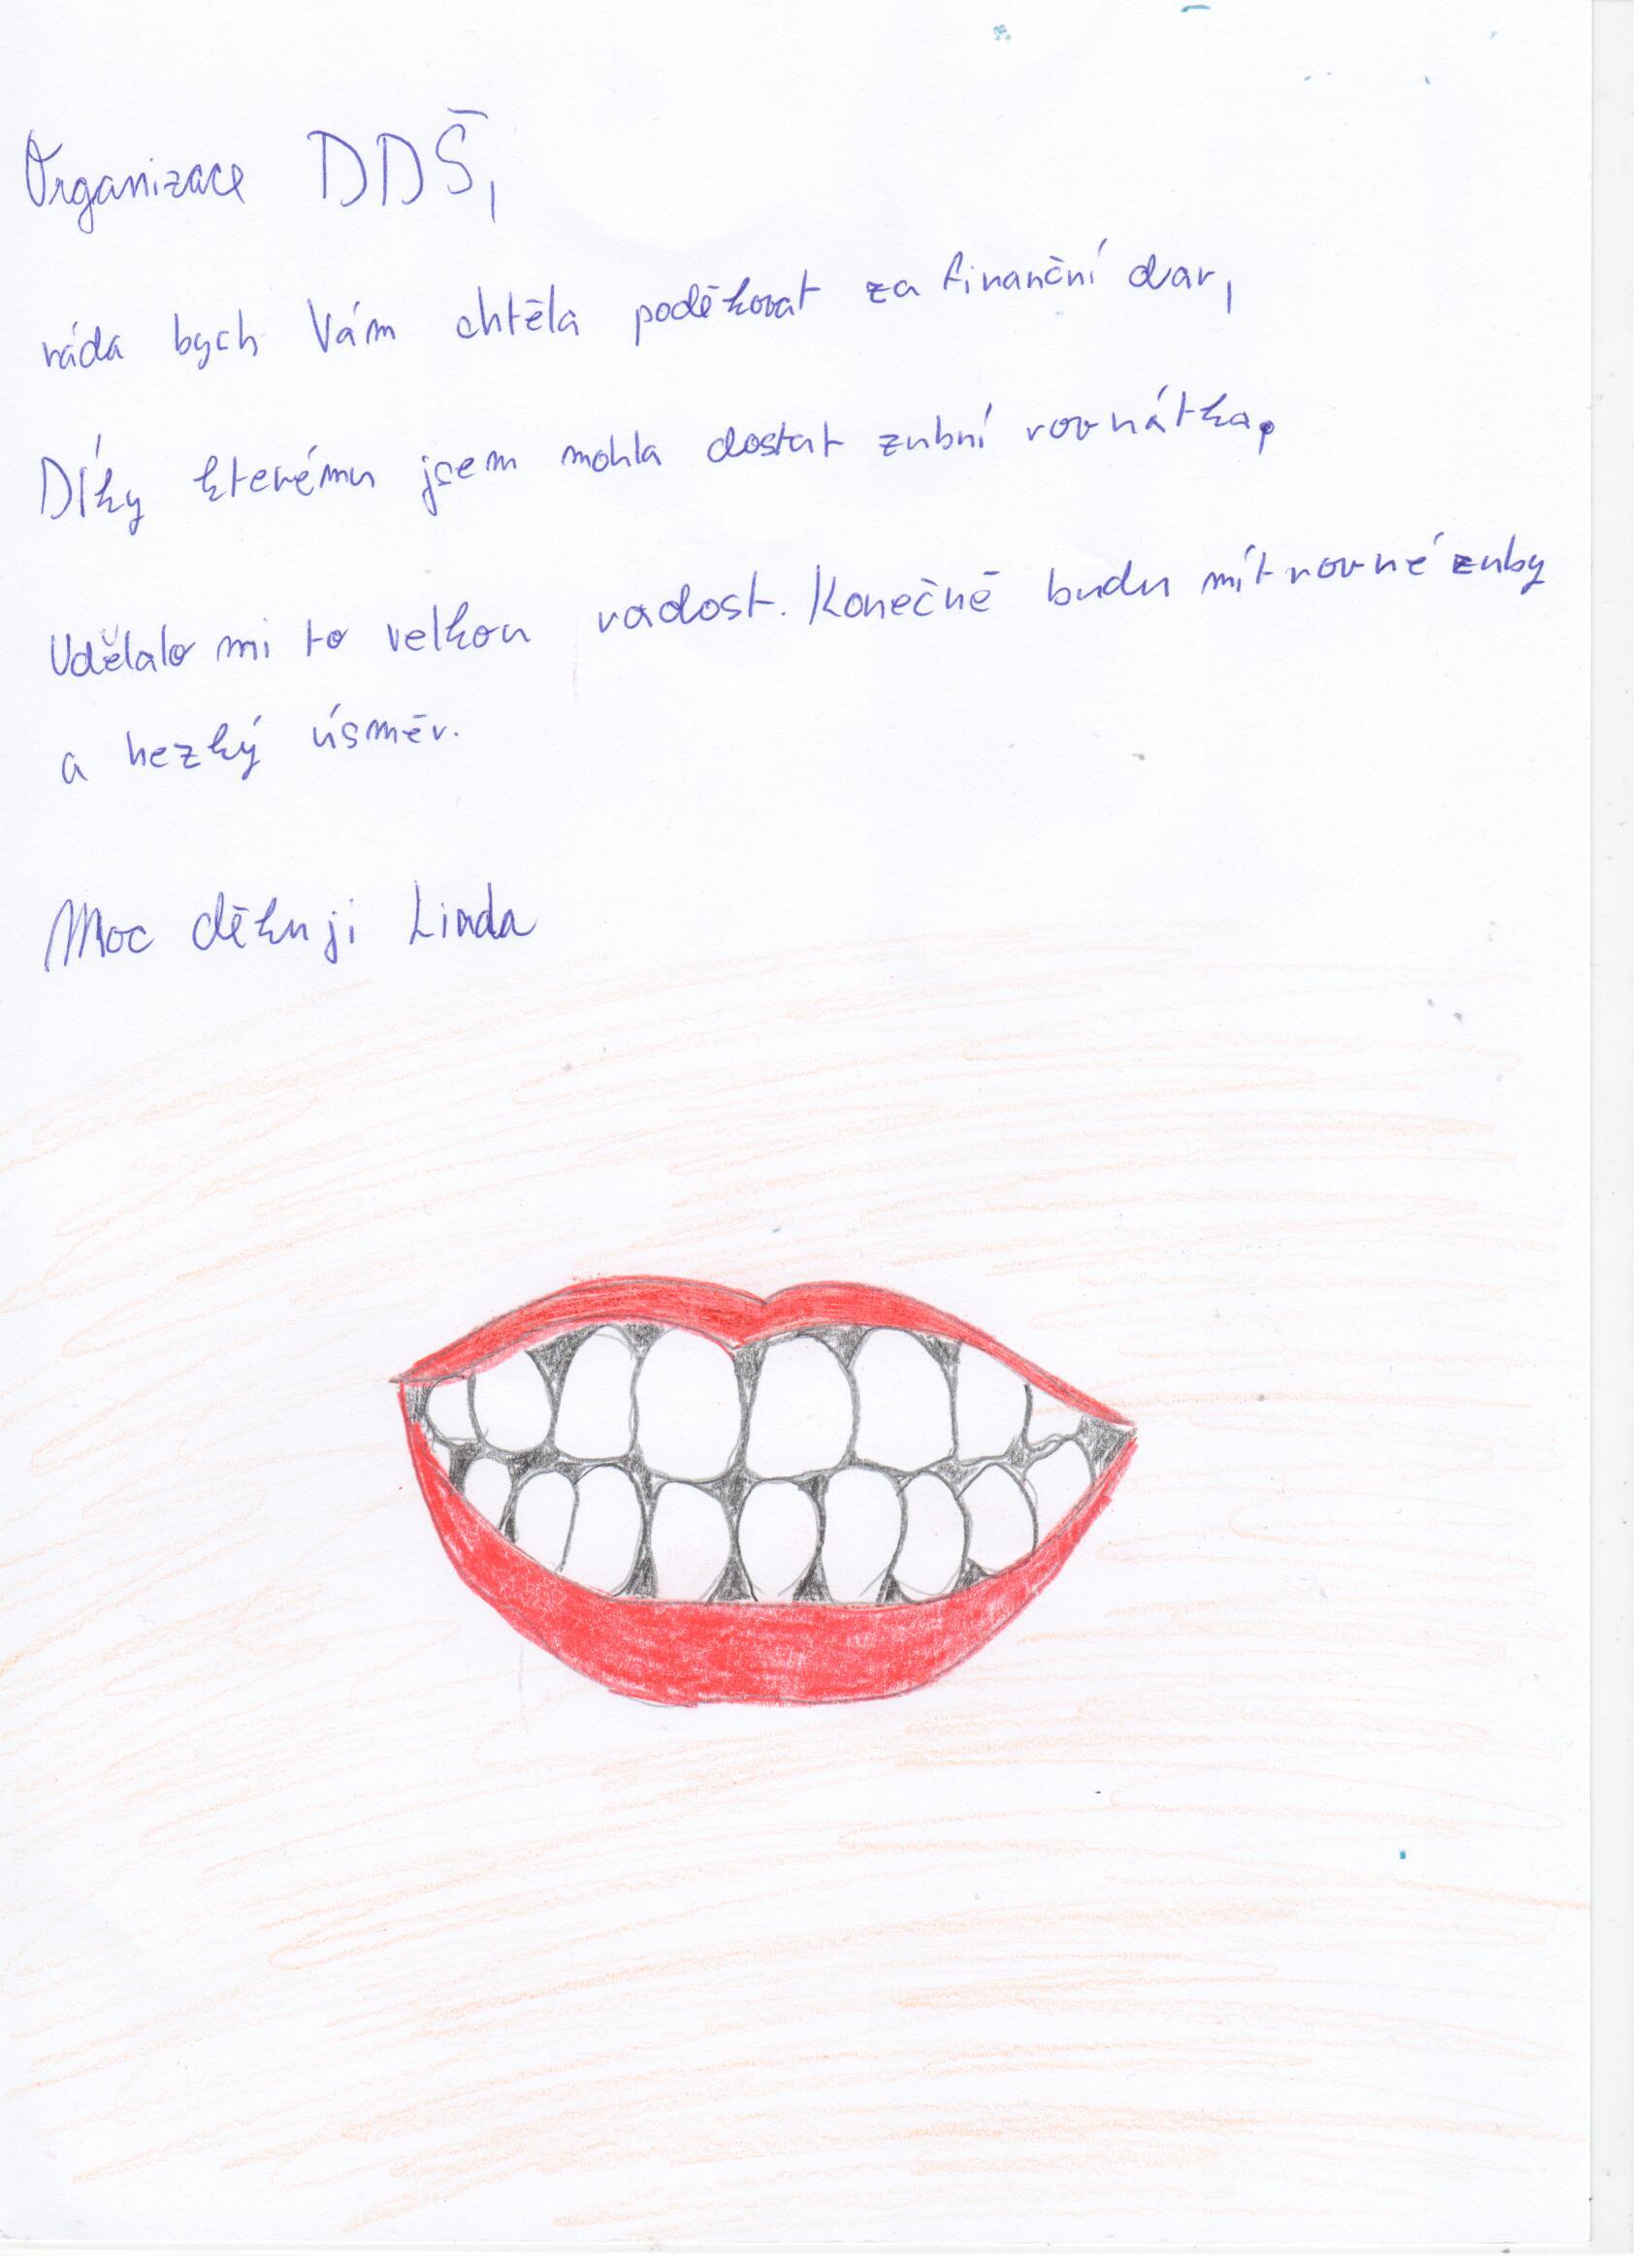 Organizace DDŠ,
ráda bych Vám chtěla poděkovat za finanční dar,
Díky kterému jsem mohla dostat zubní rovnátka.
Udělalo mi to velkou radost. Konečně budu mít rovné zuby
a hezký úsměv.
Moc děkuji Linda